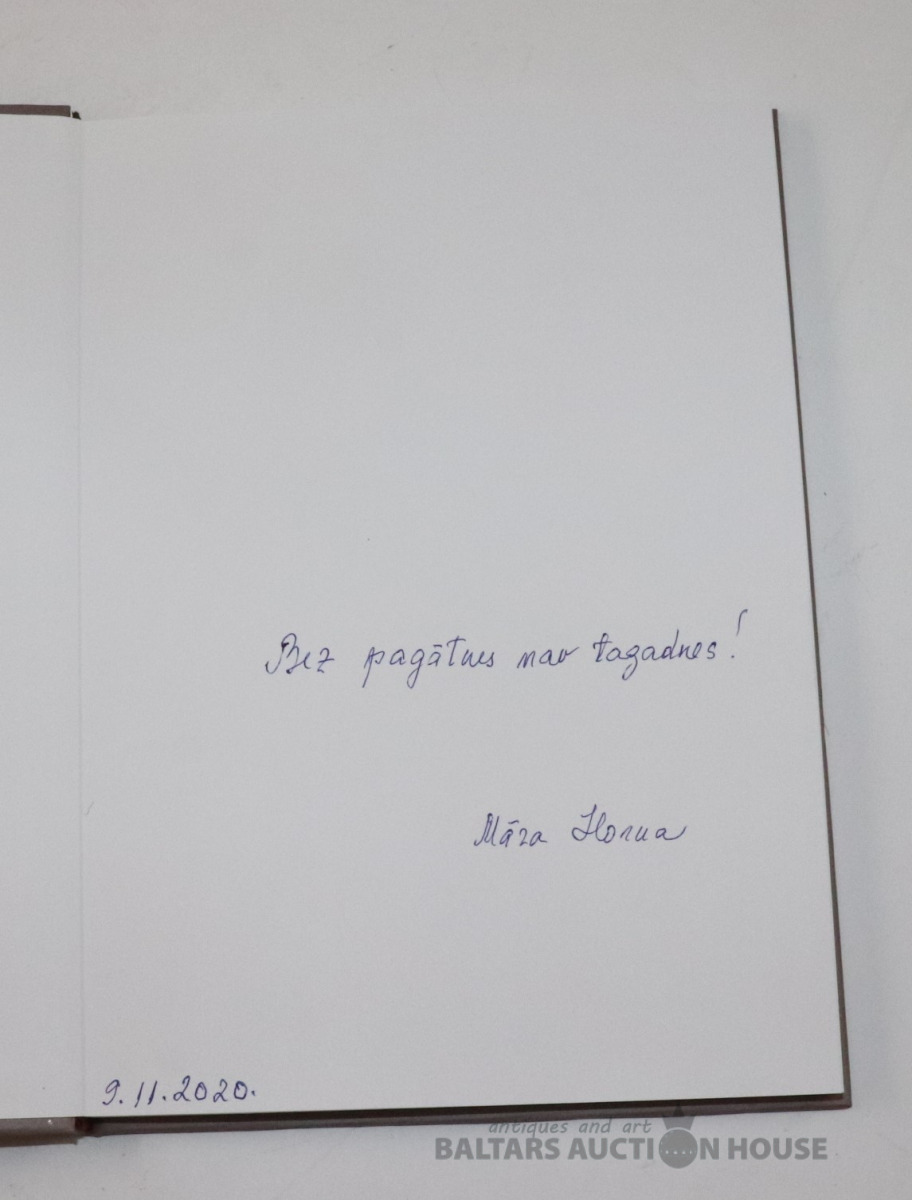 Bez pagātnes nav tagadnes!
Māra
9.11.2020.
antiques and art
BALTARS AUCTION HOUSE